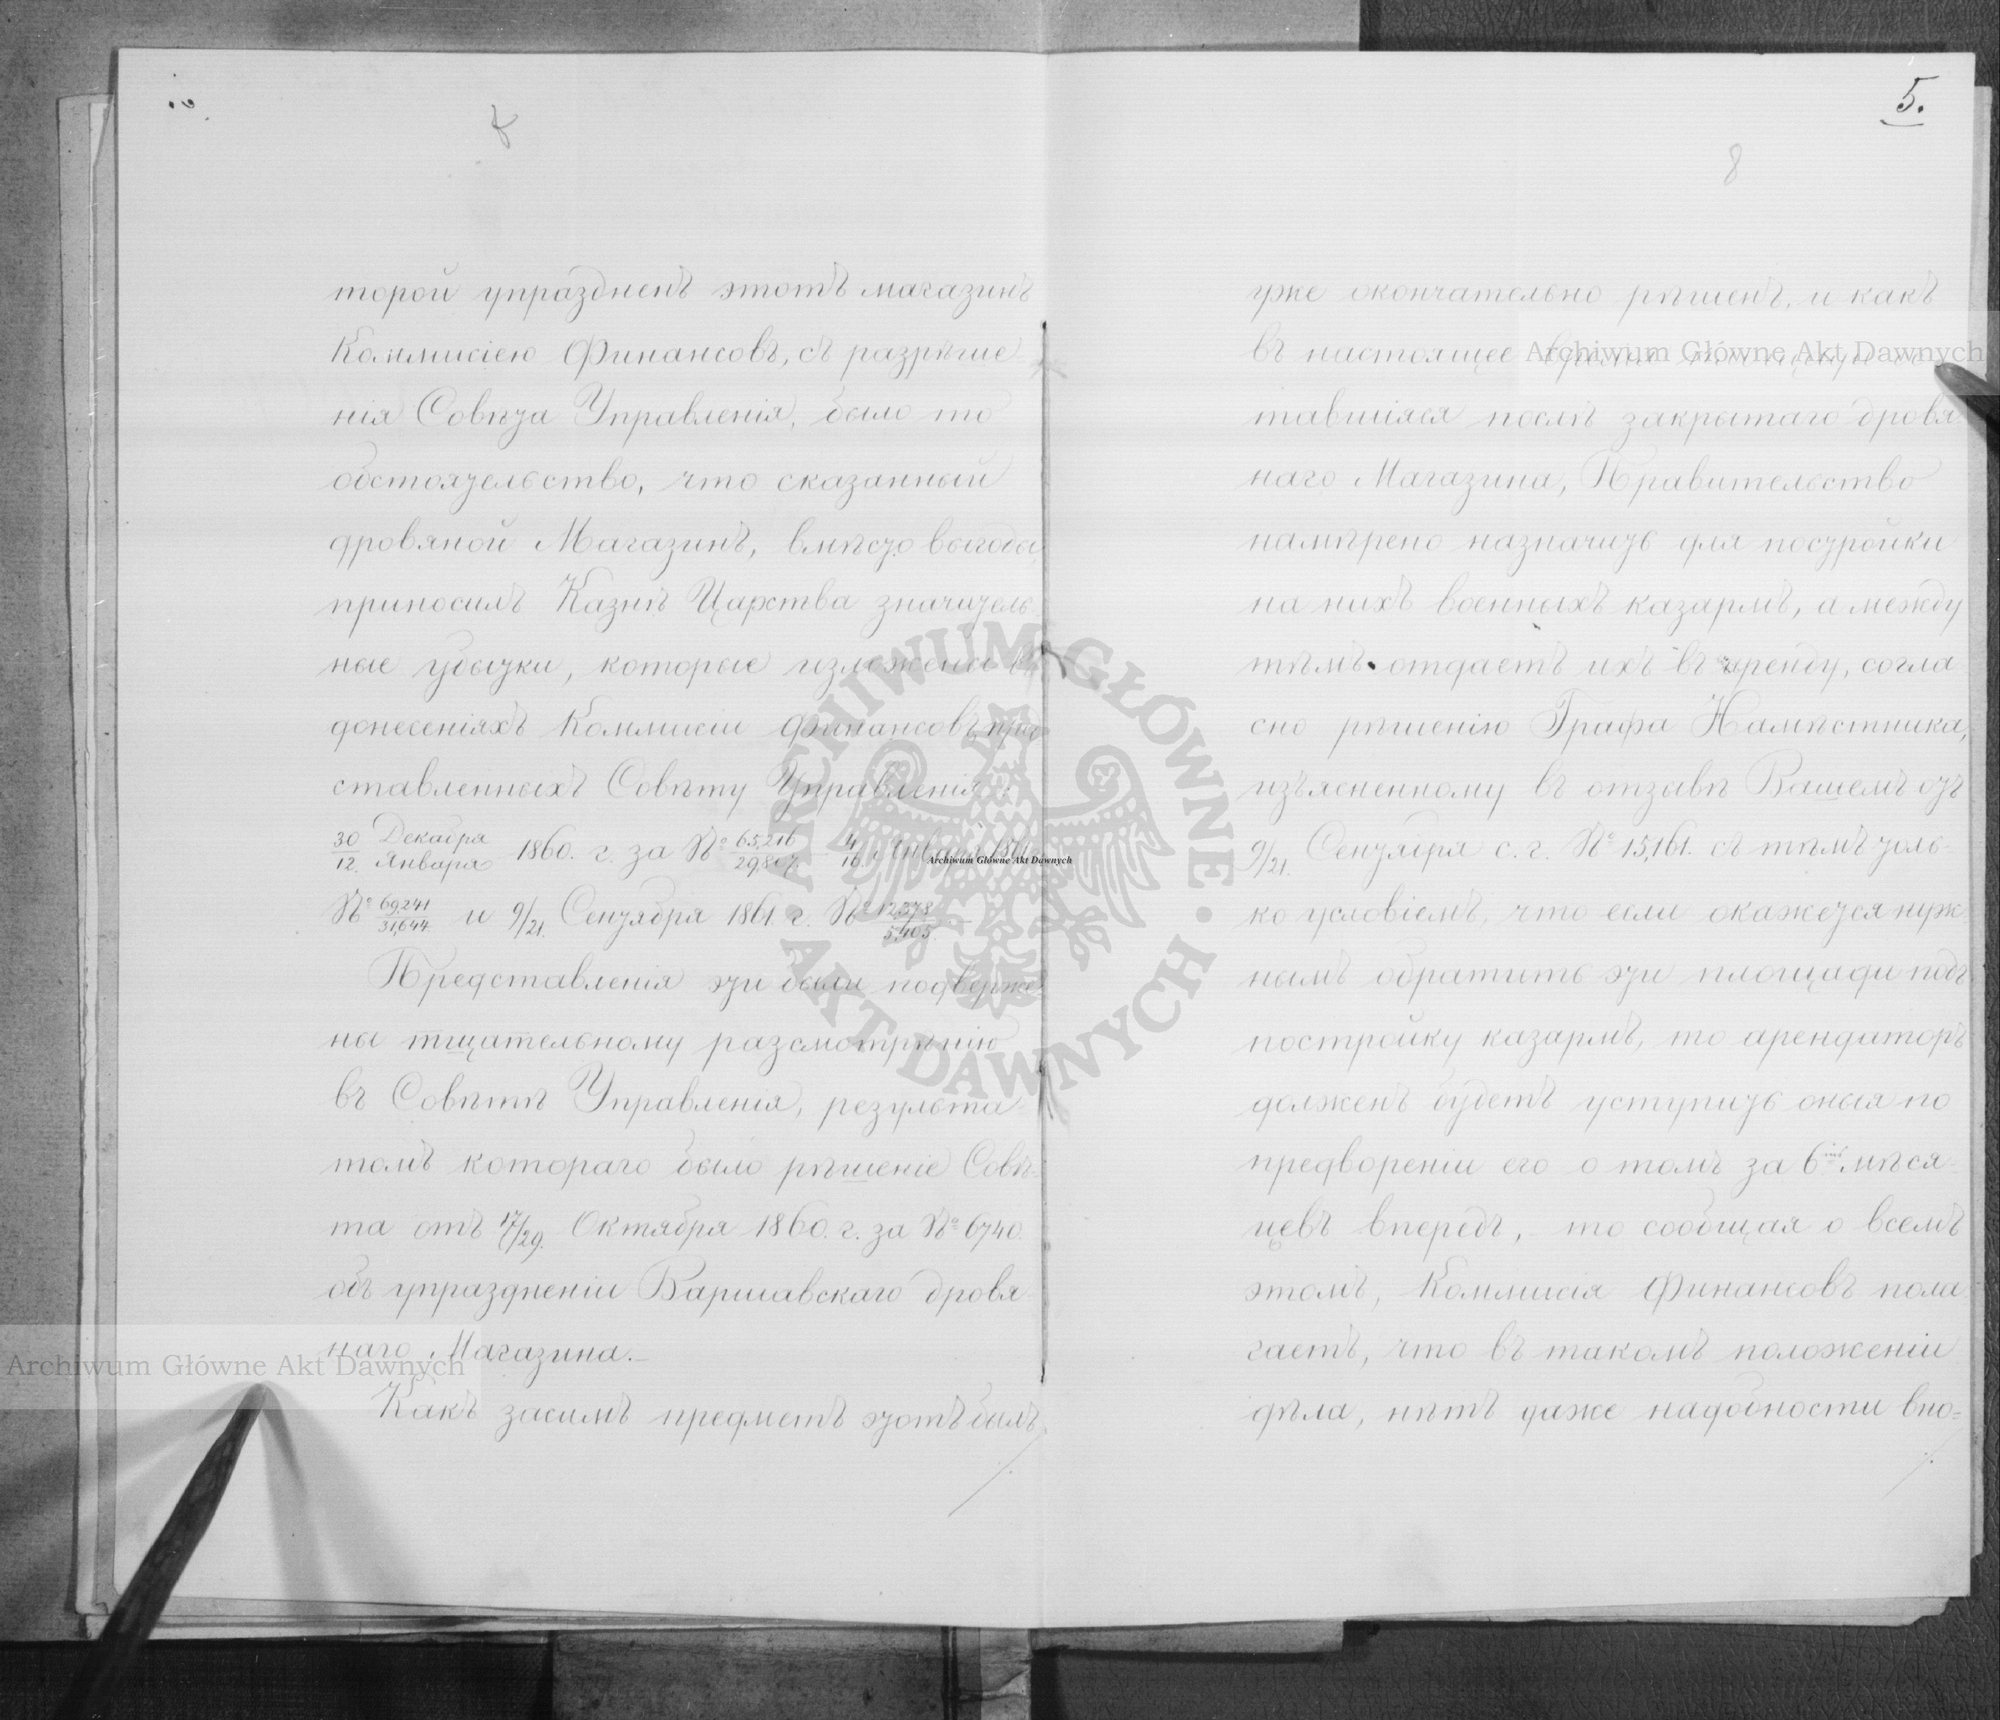 торой упраздненъ этотъ магазинъ
Коммисіею Финансовъ, съ разрѣше
нія Совѣта Управленія, было то
обстоятельство, что сказанный
дровяной Магазинъ, вмѣсто выгоды,
приносилъ Казнѣ Царства значитель-
ные убытки, которые изложены въ
донесеніяхъ Коммисіи Финансовъ, пред
ставленныхъ Совѣту Управленія:
30/12 Декабря/Января 1860. г. за № 65,216/29,807. 4/16 Января 1861
№ 69241/31,644 и 9/21. Сентября 1861. г. № 12,378/5,405.
Представленія эти были подверже-
ны тщательному разсмотрѣнію
въ Совѣтѣ Управленія, результа-
томъ котораго было рѣшеніе Совѣ-
та отъ 17/29. Октября 1860. г. за № 6740.
объ упраздненіи Варшавскаго дровя-
наго Магазина.—
Какъ засимъ предметъ этотъ былъ
5.
8
уже окончательно рѣшенъ, и какъ
въ настоящее время площади ос
тавшіяся послѣ закрытаго дровя
наго Магазина, Правительство
намѣрено назначить для постройки
на нихъ военныхъ казармъ, а между
тѣмъ отдаетъ ихъ въ аренду, согла
сно рѣшенію Графа Намѣстника,
изъясненному въ отзывѣ Вашемъ отъ
9/21. Сентября с. г. № 15,161. съ тѣмъ толь-
ко условіемъ, что если окажется нуж
нымъ обратить эти площади подъ
постройку казармъ, то арендаторъ
долженъ будетъ уступить оныя по
предвореніи его о томъ за 6 мѣся-
цевъ впередъ, то сообщая о всемъ
этомъ, Коммисія Финансовъ пола
гаетъ, что въ такомъ положеніи
дѣла, нѣтъ даже надобности впо=
Archiwum Główne Akt Dawnych
Archiwum Główne Akt Dawnych
Archiwum Główne Akt Dawnych
ARCHIWUM GŁÓWNE • AKT DAWNYCH •